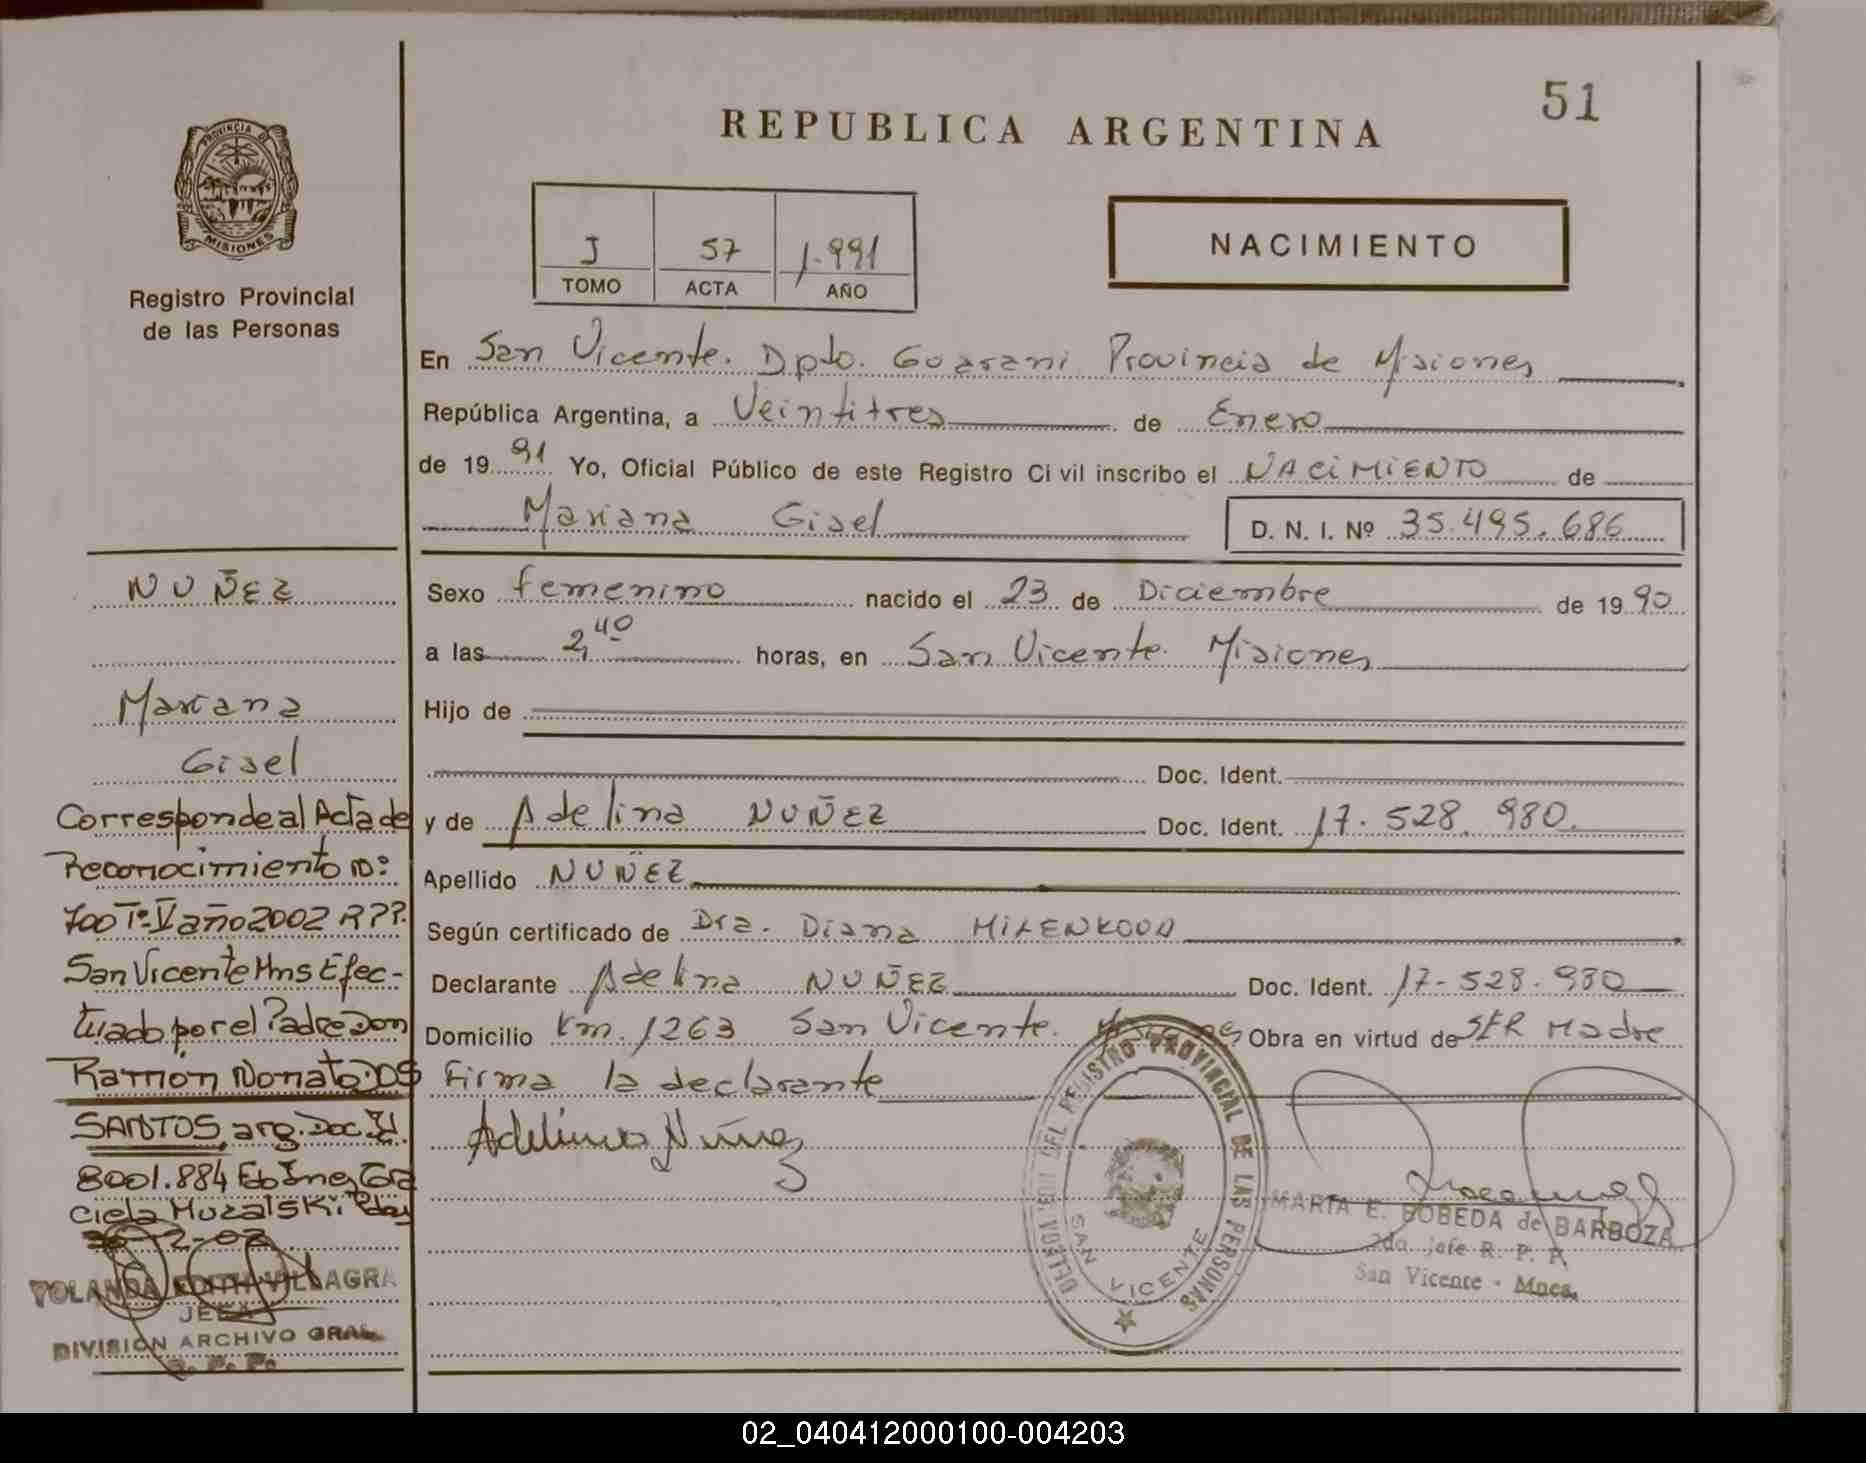 51
REPUBLICA ARGENTINA
PROVINCIA DE
MISIONES
Registro Provincial
de las Personas
J 57 1.991
TOMO ACTA AÑO
NACIMIENTO
En San Vicente. Dpto. Guarani Provincia de Misiones
República Argentina, a Veintitres de Enero
de 19 91 Yo, Oficial Público de este Registro Civil inscribo el NACIMIENTO de
Mariana Gisel D. N. I. Nº 35.495.686
Sexo femenino nacido el 23 de Diciembre de 19 90
a las 2,40 horas, en San Vicente. Misiones
Hijo de
Doc. Ident.
y de Adelina NUÑEZ Doc. Ident. 17.528.980.
Apellido NUÑEZ
Según certificado de Dra. Diana
Declarante Adelina NUÑEZ Doc. Ident. 17-528.980
Domicilio Km. 1263 San Vicente. Misiones Obra en virtud de SER Madre
Firma la declarante
Adelina Núñez
NUÑEZ
Mariana
Gisel
Corresponde al Acta de
Reconocimiento
700 Tº V año 2002 R.P.P.
San Vicente Mns Efec-
tuado por el Padre Don
Ramón Nonato DOS
SANTOS, arg. Doc. Id.
8001.884
ciela
YOLANDA EDITH VILLAGRA
JEFA
DIVISION ARCHIVO GRAL.
R. P. P.
DELEGACION DEL REGISTRO PROVINCIAL DE LAS PERSONAS
SAN VICENTE
MARIA E. BOBEDA de BARBOZA
2da. jefe R. P. P.
San Vicente - Mnes.
02_040412000100-004203